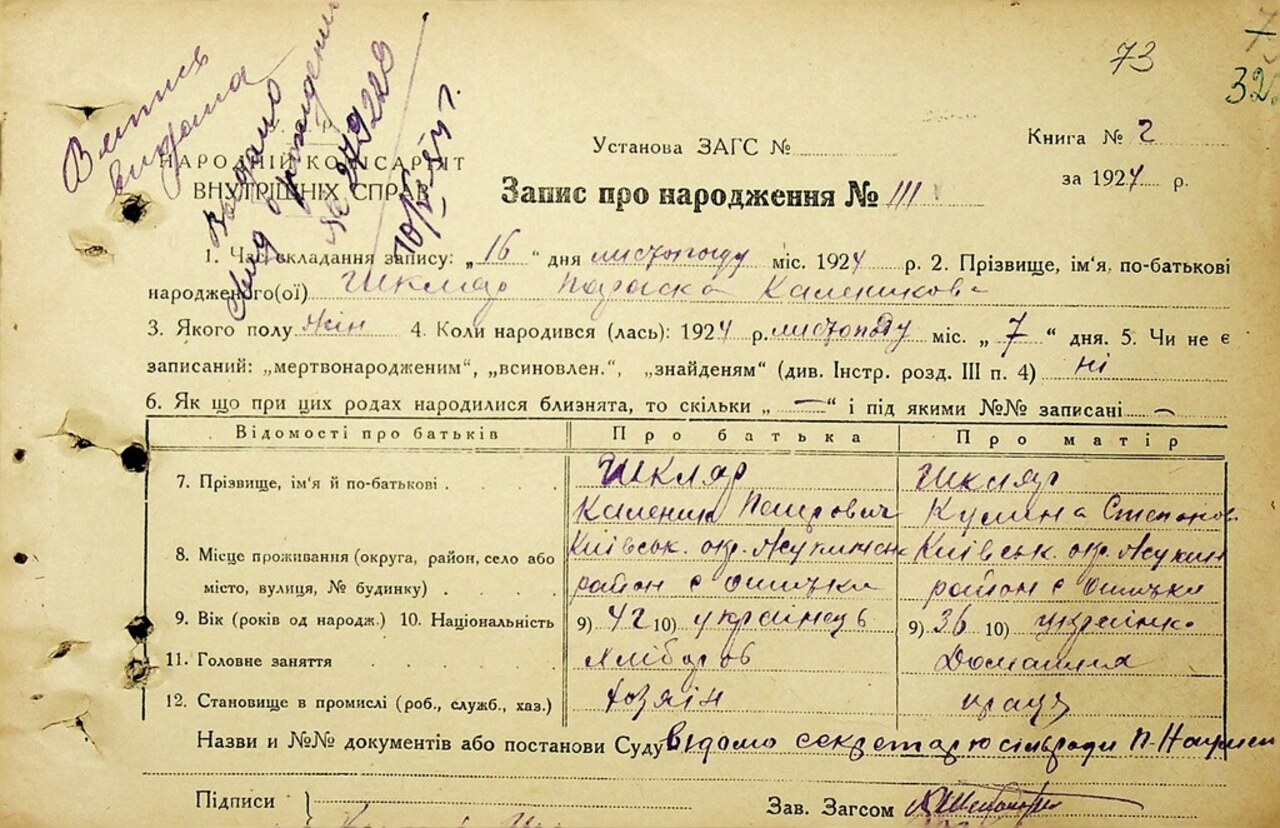 73
32
Витяг видана
Видано
№ 279220
Р.
НАРОДНІЙ КОМІСАРІЯТ
ВНУТРІШНІХ СПРАВ
Установа ЗАГС №
Книга № 2
за 1924 р.
Запис про народження № 111
1. Час складання запису: „16“ дня листопаду міс. 1924 р. 2. Прізвище, ім'я, по-батькові
народженого(ої) Шкляр Параска Каленикова
3. Якого полу жін 4. Коли народився (лась): 1924 р. листопаду міс. „7“ дня. 5. Чи не є
записаний: „мертвонародженим“, „всиновлен.“, „знайденям“ (див. Інстр. розд. III п. 4) ні
6. Як що при цих родах народилися близнята, то скільки „—“ і під якими №№ записані —
Відомості про батьків Про батька Про матір
7. Прізвище, ім'я й по-батькові Шкляр Шкляр
Каленик Петрович Кулина Степанов
8. Місце проживання (округа, район, село або Київськ. окр. Київськ. окр.
місто, вулиця, № будинку) район с район с
9. Вік (років од народж.) 10. Національність 9) 42 10) українець 9) 36 10) українка
11. Головне заняття Хлібороб Домашня
12. Становище в промислі (роб., служб., хаз.) хозяїн праця
Назви и №№ документів або постанови Суду Відомо секретарю сільради
Підписи
Зав. Загсом